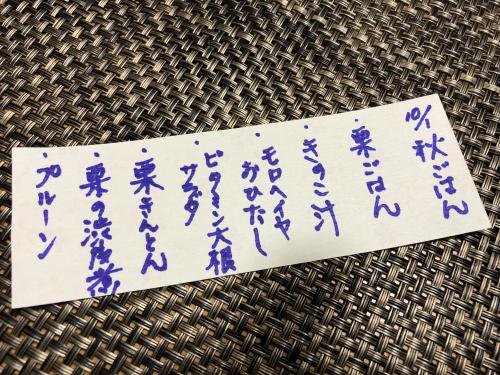 10/1 秋ごはん
・栗ごはん
・きのこ汁
・モロヘイヤ
おひたし
・ビタミン大根
サラダ
・栗きんとん
・栗の渋皮煮
・プルーン